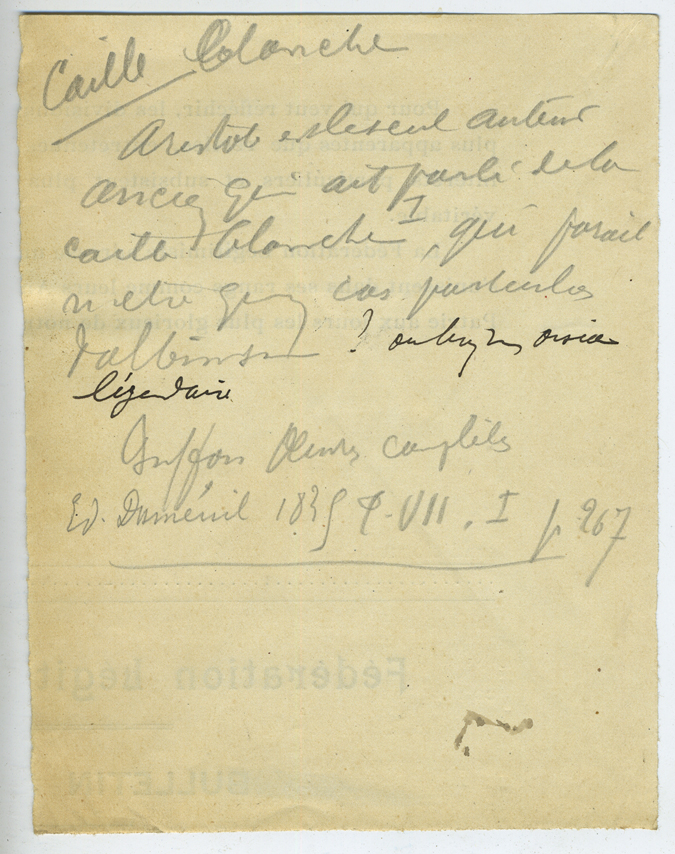 Caille blanche
Aristote est le seul auteur
ancien qui ait parlé de la
caille blanche I, qui parait
n'etre qu'un cas particulier
d'albinisme ? ou bien un oiseau
légendaire
Buffon Oeuvres complètes
Ed. Duménil 1835 T. VII. I p 267
Fédération Légit
BULLETIN